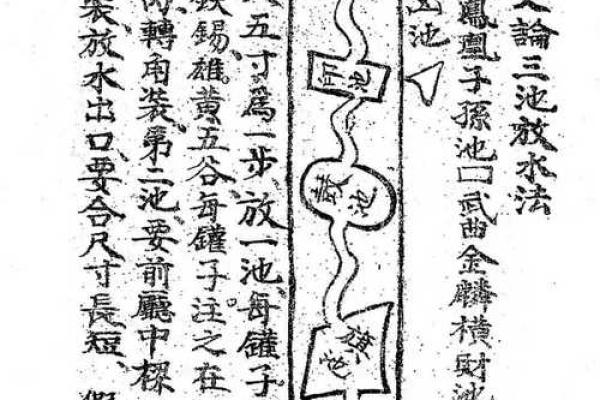 論三池放水法
鳳凰子孫池口武曲金麟橫財池
池
印池
鼓池
旗池
五寸爲一步放一池、每罐子
錫雄黃五谷每罐子注之。在
轉角裝、第二池要前廳中樑
裝放水出口、要合尺寸長短、